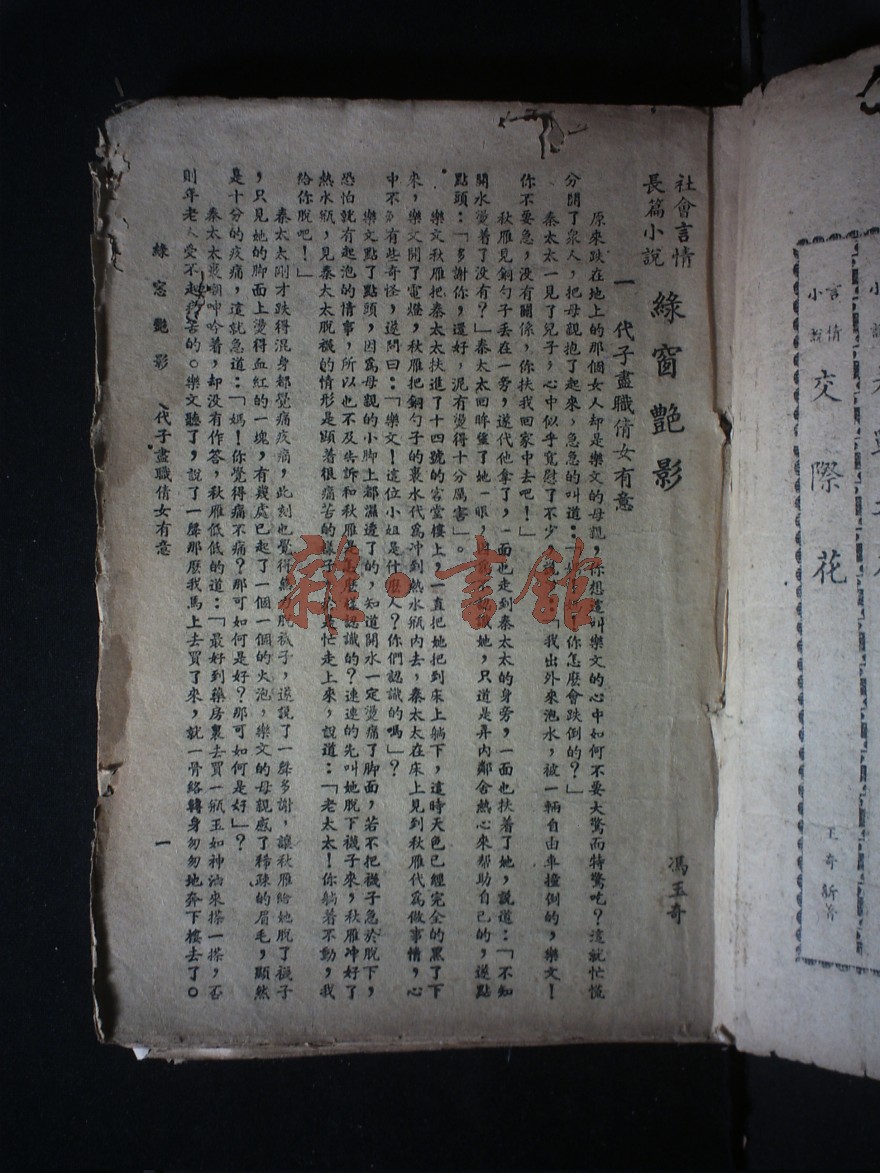 社會言情
長篇小說
綠窗艷影
馮玉奇
一　代子盡職倩女有意
原來跌在地上的那個女人却是樂文的母親，你想這叫樂文的心中如何不要大驚而特驚呢？這就忙慌
分開了衆人，把母親抱了起來，急急的叫道：「媽！你怎麼會跌倒的？」
秦太太一見了兒子，心中似乎寬慰了不少，「我出外來泡水，被一輛自由車撞倒的，樂文！
你不要急，沒有關係，你扶我回家中去吧！」
秋雁見銅勺子丢在一旁，遂代他拿了，一面也走到秦太太的身旁，一面也扶着了她，說道：「不知
開水燙着了没有？」秦太太回眸望了她一眼，因爲不認識她，只道是弄內鄰舍熱心來帮助自己的，遂點
點頭：「多謝你，還好，泥有燙得十分厲害」。
樂文秋雁把秦太太扶進了十四號的宫堂樓上，一直把她把到床上躺下，這時天色已經完全的黑了下
來，樂文開了電燈，秋雁把銅勺子的裏水代爲冲到熱水瓶內去，秦太太在床上見到秋雁代爲做事情，心
中不免有些奇怪，遂問曰：「樂文！這位小姐是什麼人？你們認識的嗎」？
樂文點了點頭，因爲母親的小脚上都濕透了的，知道開水一定燙痛了脚面，若不把襪子急於脫下，
恐怕就有起泡的情事，所以也不及告訴和秋雁是怎麼樣認識的？連連的先叫她脫下襪子來，秋雁冲好了
熱水瓶，見秦太太脫襪的情形是顯着很痛苦的樣子，於是忙走上來，說道：「老太太！你躺着不動，我
給你脫吧！」
秦太太剛才跌得混身都覺痛疚痛，此刻也覺得無力脫襪子，遂說了一聲多謝，讓秋雁給她脫了襪子
，只見她的脚面上燙得血紅的一塊，有幾處已起了一個一個的火泡，樂文的母親感了稀疎的眉毛，顯然
是十分的疚痛，這就急道：「媽！你覺得痛不痛？那可如何是好？那可如何是好」？
秦太太裏嘲呻吟着，却没有作答，秋雁低低的道：「最好到藥房裏去買一瓶玉如神油來搽一搽，否
則年老人受不起苦的。樂文聽了，說了一聲那麼我馬上去買了來，就一骨絡轉身匆匆地奔下樓去了。
綠窓艷影　代子盡職倩女有意　一
雜·書舘
言情
小說
交際花
王奇新著